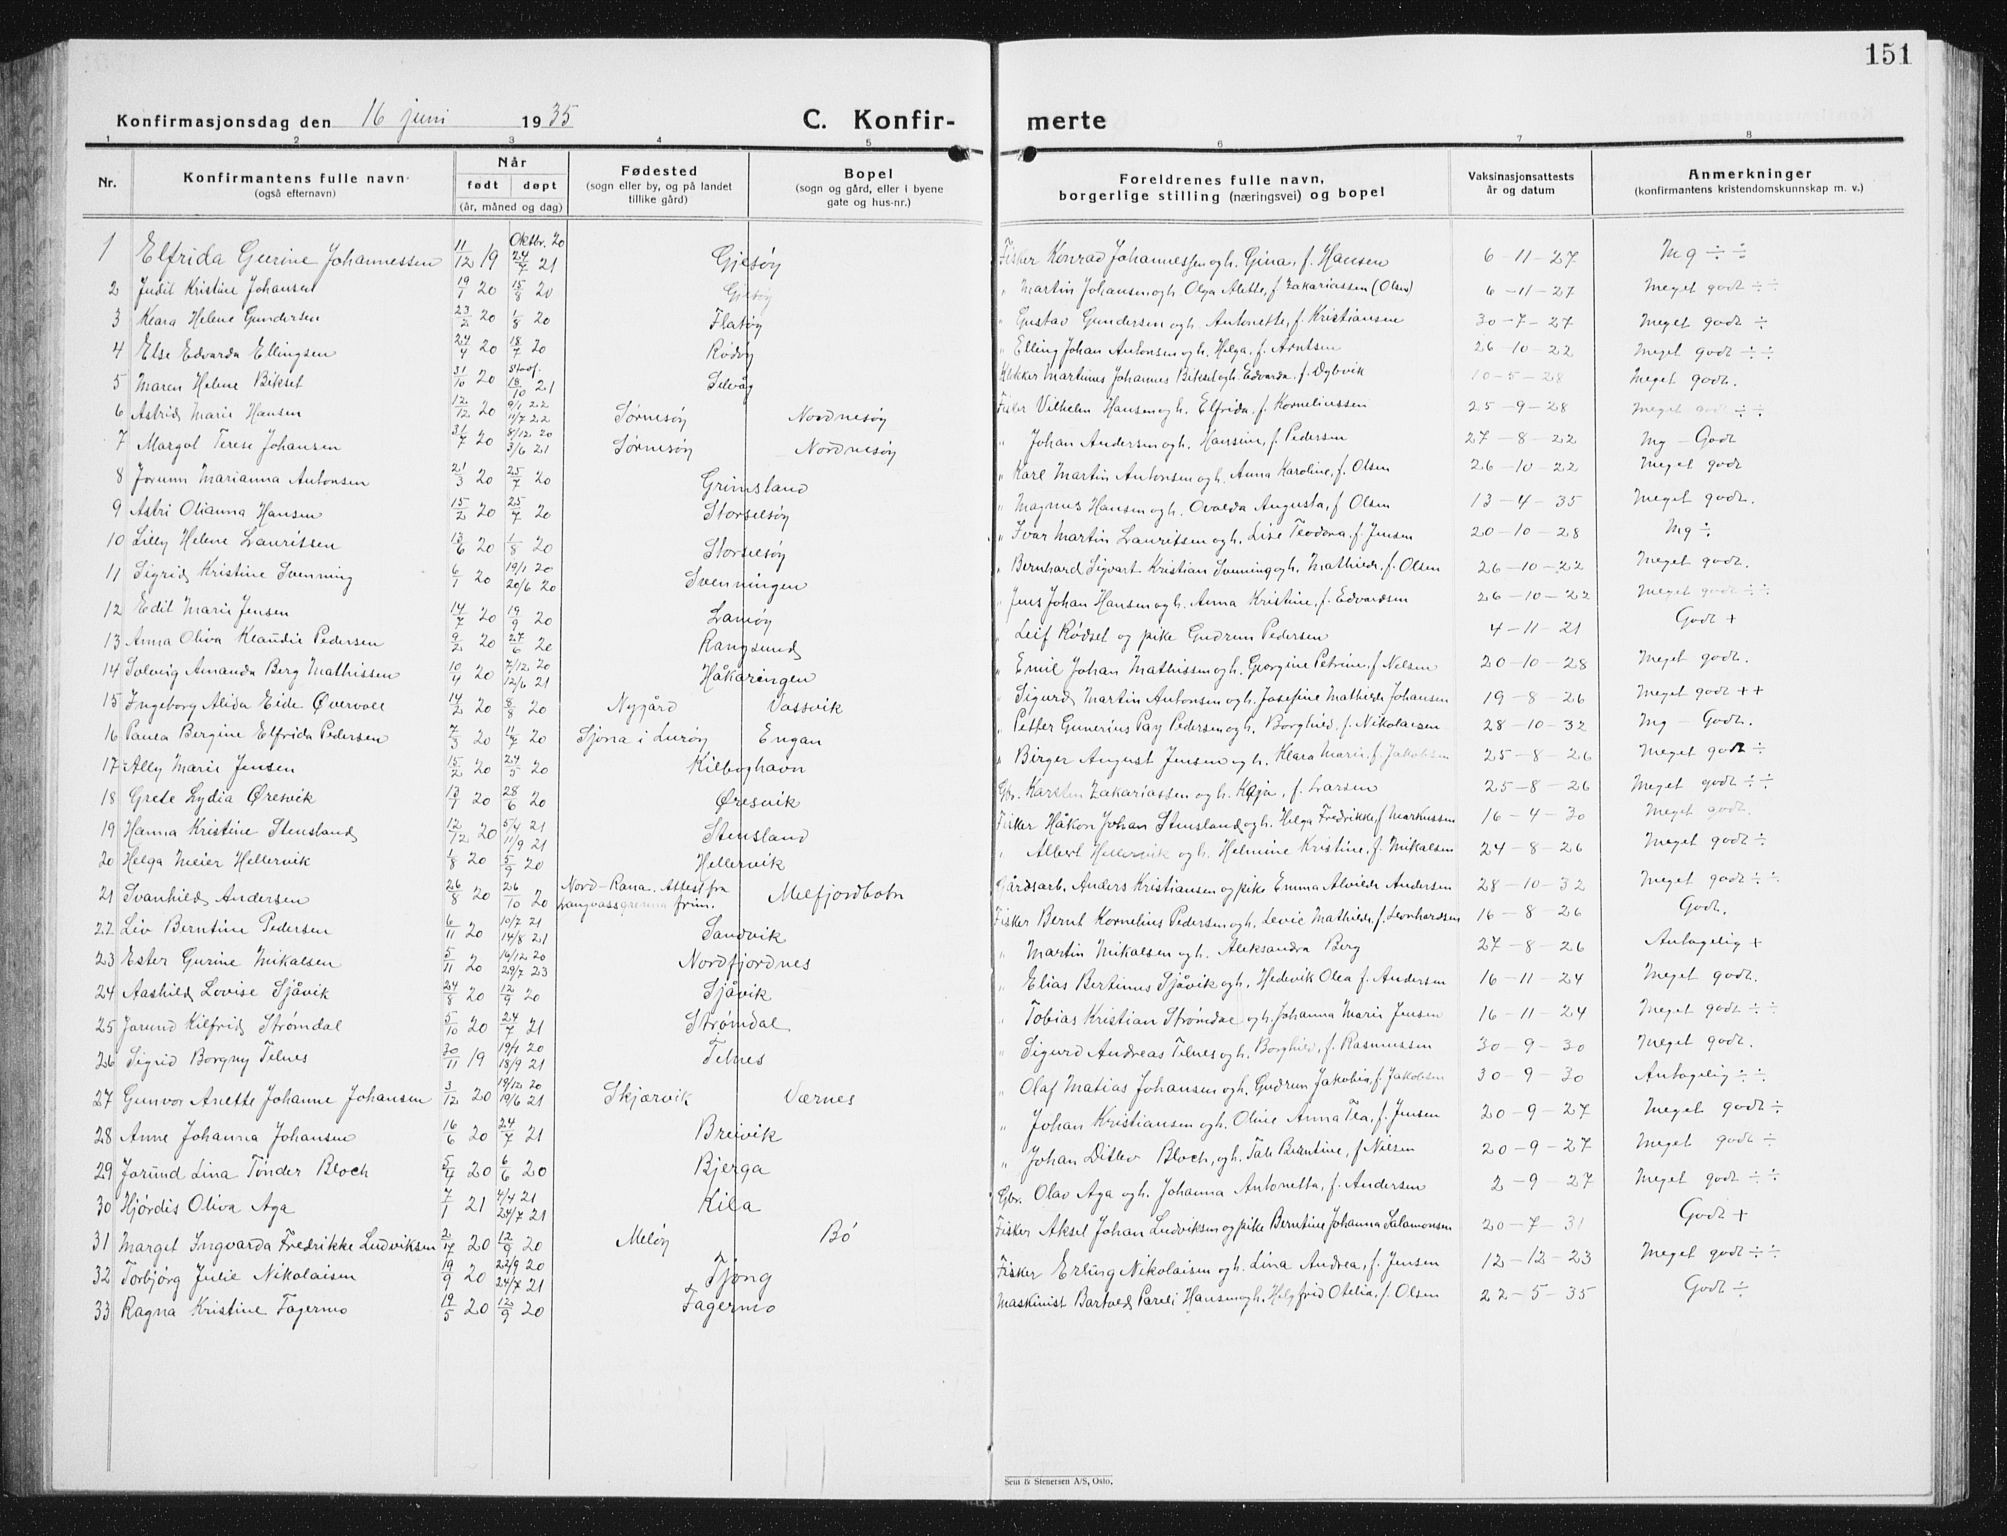 151
Konfirmasjonsdag den 16 juni 1935 C. Konfir- merte
1 2 3 4 5 6 7 8
Nr. Konfirmantens fulle navn (også efternavn) Når født døpt (år, måned og dag) Fødested (sogn eller by, og på landet tillike gård) Bopel (sogn og gård, eller i byene gate og hus-nr.) Foreldrenes fulle navn, borgerlige stilling (næringsvei) og bopel Vaksinasjonsattests år og datum Anmerkninger (konfirmantens kristendomskunnskap m. v.)
1 Elfrida Gurine Johannessen 11/12 19 Oktbr. 20 24/7 21 Gjesøy Fisker Konrad Johannessen og h. Gina, f. Hansen 6-11-27 Mg ÷ ÷
2 Judit Kristine Johansen 19/1 20 15/8 20 Gjesøy " Martin Johansen og h. Olga Alette, f. Zakariassen (Olsen) 6-11-27 Meget godt ÷ ÷
3 Klara Helene Gundersen 23/2 20 1/8 20 Flatøy " Gustav Gundersen og h. Antonette, f. Kristiansen 30-7-27 Meget godt ÷
4 Else Edvarda Ellingsen 24/4 20 18/7 20 Rødøy " Elling Johan Antonsen og h. Helga, f. Arntsen 26-10-22 Meget godt ÷ ÷
5 Maren Helene Bikset 31/10 20 18/10 21 Selvåg Klokker Martinus Johannes Bikset og h. Edvarda, f. Dybvik 10-5-28 Meget godt.
6 Astrid Marie Hansen 12/12 20 9/1 22 11/7 22 Sørnesøy Nordnesøy Fisker Vilhelm Hansen og h. Elfrida, f. Korneliussen 25-9-28 Meget godt ÷ ÷
7 Margot Terese Johansen 31/7 20 8/12 20 3/6 21 Sørnesøy Nordnesøy " Johan Andersen og h. Hansine, f. Pedersen 27-8-22 Mg - Godt
8 Jorunn Marianna Antonsen 21/3 20 25/7 20 Grimsland " Karl Martin Antonsen og h. Anna Karoline, f. Olsen 26-10-22 Meget godt
9 Astri Olianna Hansen 15/2 20 25/7 20 Storselsøy " Magnus Hansen og h. Ovalda Augusta, f Olsen 13-4-35 Meget godt.
10 Lilly Helene Lauritsen 13/6 20 1/8 20 Storselsøy " Ivar Martin Lauritsen og h. Lise Teodora, f. Jensen 20-10-28 Mg ÷
11 Sigrid Kristine Svenning 6/1 20 19/1 20 20/6 20 Svenningen " Bernhard Sigvart Kristian Svenning og h. Mathilde, f. Olsen 26-10-22 Meget godt.
12 Edit Marie Jensen 14/7 20 19/9 20 Lamøy " Jens Johan Hansen og h. Anna Kristine, f. Edvardsen 26-10-22 Meget godt ÷ ÷
13 Anna Oliva Klaudie Pedersen 9/2 20 27/6 20 Rangsund " Leif Rødset og pike Gudrun Pedersen 4-11-21 Godt +
14 Solveig Amanda Berg Mathissen 10/4 20 7/12 20 12/6 21 Håkaringen " Emil Johan Mathissen og h. Georgine Petrine, f. Nilsen 20-10-28 Meget godt.
15 Ingeborg Alida Eide Øvervoll 14/2 20 8/8 20 Nygård Vassvik " Sigurd Martin Antonsen og h. Josefine Mathilde Johansen 19-8-26 Meget godt + +
16 Paula Bergine Elfrida Pedersen 7/3 20 11/7 20 Sjona i Lurøy Engan " Petter Gunerius Pay Pedersen og h. Borghild, f. Nikolaisen 28-10-32 Mg - Godt.
17 Ally Marie Jensen 15/2 20 24/5 20 Kilboghavn " Birger August Jensen og h. Klara Marie, f. Jakobsen 25-8-26 Meget godt ÷
18 Grete Lydia Øresvik 13/1 20 28/6 20 Øresvik Gbr. Karsten Zakariassen og h. Kaja, f. Larsen 25-8-26 Meget godt ÷ ÷
19 Hanna Kristine Stensland 12/12 20 5/4 21 11/9 21 Stensland Fisker Håkon Johan Stensland og h. Helga Fredrikke, f Markussen 16-4-30 Meget godt.
20 Helga Meier Hellervik 1/8 20 5/9 20 Hellervik " Albert Hellervik og h. Helmine Kristine, f. Mikalsen 24-8-26 Meget godt ÷
21 Svanhild Andersen 26/8 20 26/10 20 Nord-Rana. Attest fra Langvassgrenna frim. Melfjordbotn Gårdsarb. Anders Kristiansen og pike Emma Alvilde Andersen 28-10-32 Meget godt ÷ ÷
22 Liv Berntine Pedersen 6/11 20 10/7 21 14/8 21 Sandvik Fisker Bernt Kornelius Pedersen og h. Levie Mathilde, f. Leonhardsen 16-8-26 Godt.
23 Ester Gurine Mikalsen 5/11 20 16/12 20 29/7 23 Nordfjordnes " Martin Mikalsen og h. Aleksandra Berg 27-8-26 Antagelig +
24 Aashild Lovise Sjåvik 24/8 20 12/9 20 Sjåvik " Elias Bertinus Sjåvik og h. Hedevik Olea f. Andersen 16-11-24 Meget godt.
25 Jorund Kilfrid Strømdal 5/10 20 24/7 21 Strømdal " Tobias Kristian Strømdal og h. Johanna Marie Jensen 16-11-24 Meget godt ÷
26 Sigrid Borgny Telnes 30/11 19 19/1 20 18/9 21 Telnes " Sigurd Andreas Telnes og h. Borghild, f. Rasmussen 30-9-30 Meget godt.
27 Gunvor Anette Johanne Johansen 3/12 20 19/12 20 19/6 21 Skjærvik Værnes " Olaf Matias Johansen og h. Gudrun Jakobia, f. Jakobsen 30-9-30 Antagelig ÷ ÷
28 Anne Johanna Johansen 16/6 20 24/7 21 Breivik " Johan Kristiansen og h. Oline Anna Tea, f. Jensen 20-9-27 Meget godt ÷
29 Jorund Lina Tønder Bloch 5/4 20 6/6 20 Bjerga " Johan Ditlev Bloch, og h. Tale Berntine, f Nielsen 20-9-27 Meget godt ÷
30 Hjørdis Oliva Aga 7/1 21 4/4 21 24/7 21 Kila Gbr. Olav Aga og h. Johanna Antonetta, f. Andersen 2-9-27 Meget godt ÷ ÷
31 Marget Ingvarda Fredrikke Ludviksen 20 12/9 20 Meløy Bø Fisker Aksel Johan Ludviksen og pike Berntine Johanna Salamonsen 20-7-31 Godt +
32 Torbjørg Julie Nikolaisen 19/9 20 22/9 20 24/7 21 Tjong Fisker Erling Nikolaisen og h. Lina Andrea, f. Jensen 12-12-23 Meget godt ÷ ÷
33 Ragna Kristine Fagermo 19/5 20 12/9 20 Fagermo Maskinist Bartold Pareli Hansen og h. Helgfrid Otelia, f. Olsen 22-5-35 Godt ÷
Sem & Stenersen A/S, Oslo.